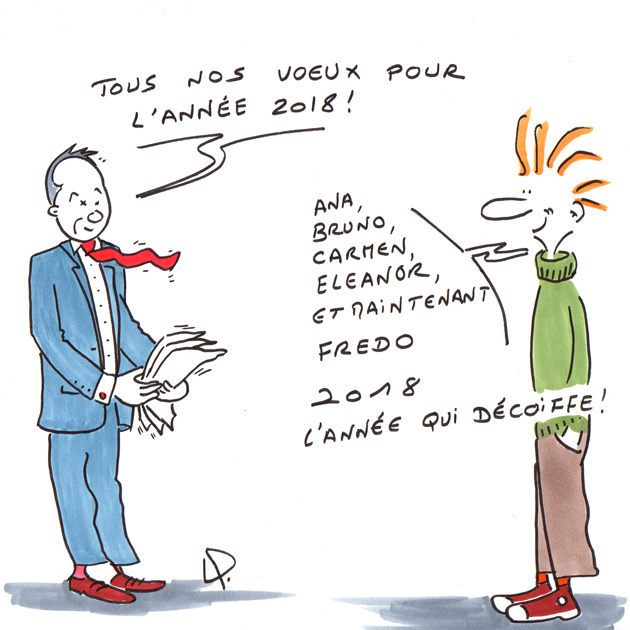 TOUS NOS VOEUX POUR
L'ANNÉE 2018!
ANA,
BRUNO,
CARMEN,
ELEANOR,
ET MAINTENANT
FREDO
2018
L'ANNÉE QUI DÉCOIFFE!